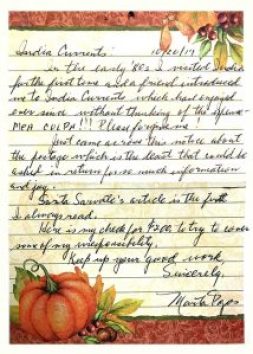 India Currents: 10/20/17
in the early '80s I visited India
for the first time and a friend introduced
me to India Currents which has enjoyed
ever since without thinking of the expense
MEA CULPA!!! Please forgive me
Just came across this notice about
the postage which is the least that could be
asked in return for so much information
and joy.
Sarita Sarvate's article is the first
I always read.
Here is my check for to try to cover
some of my irresponsibility.
Keep up your good work,
Sincerely,
Marta